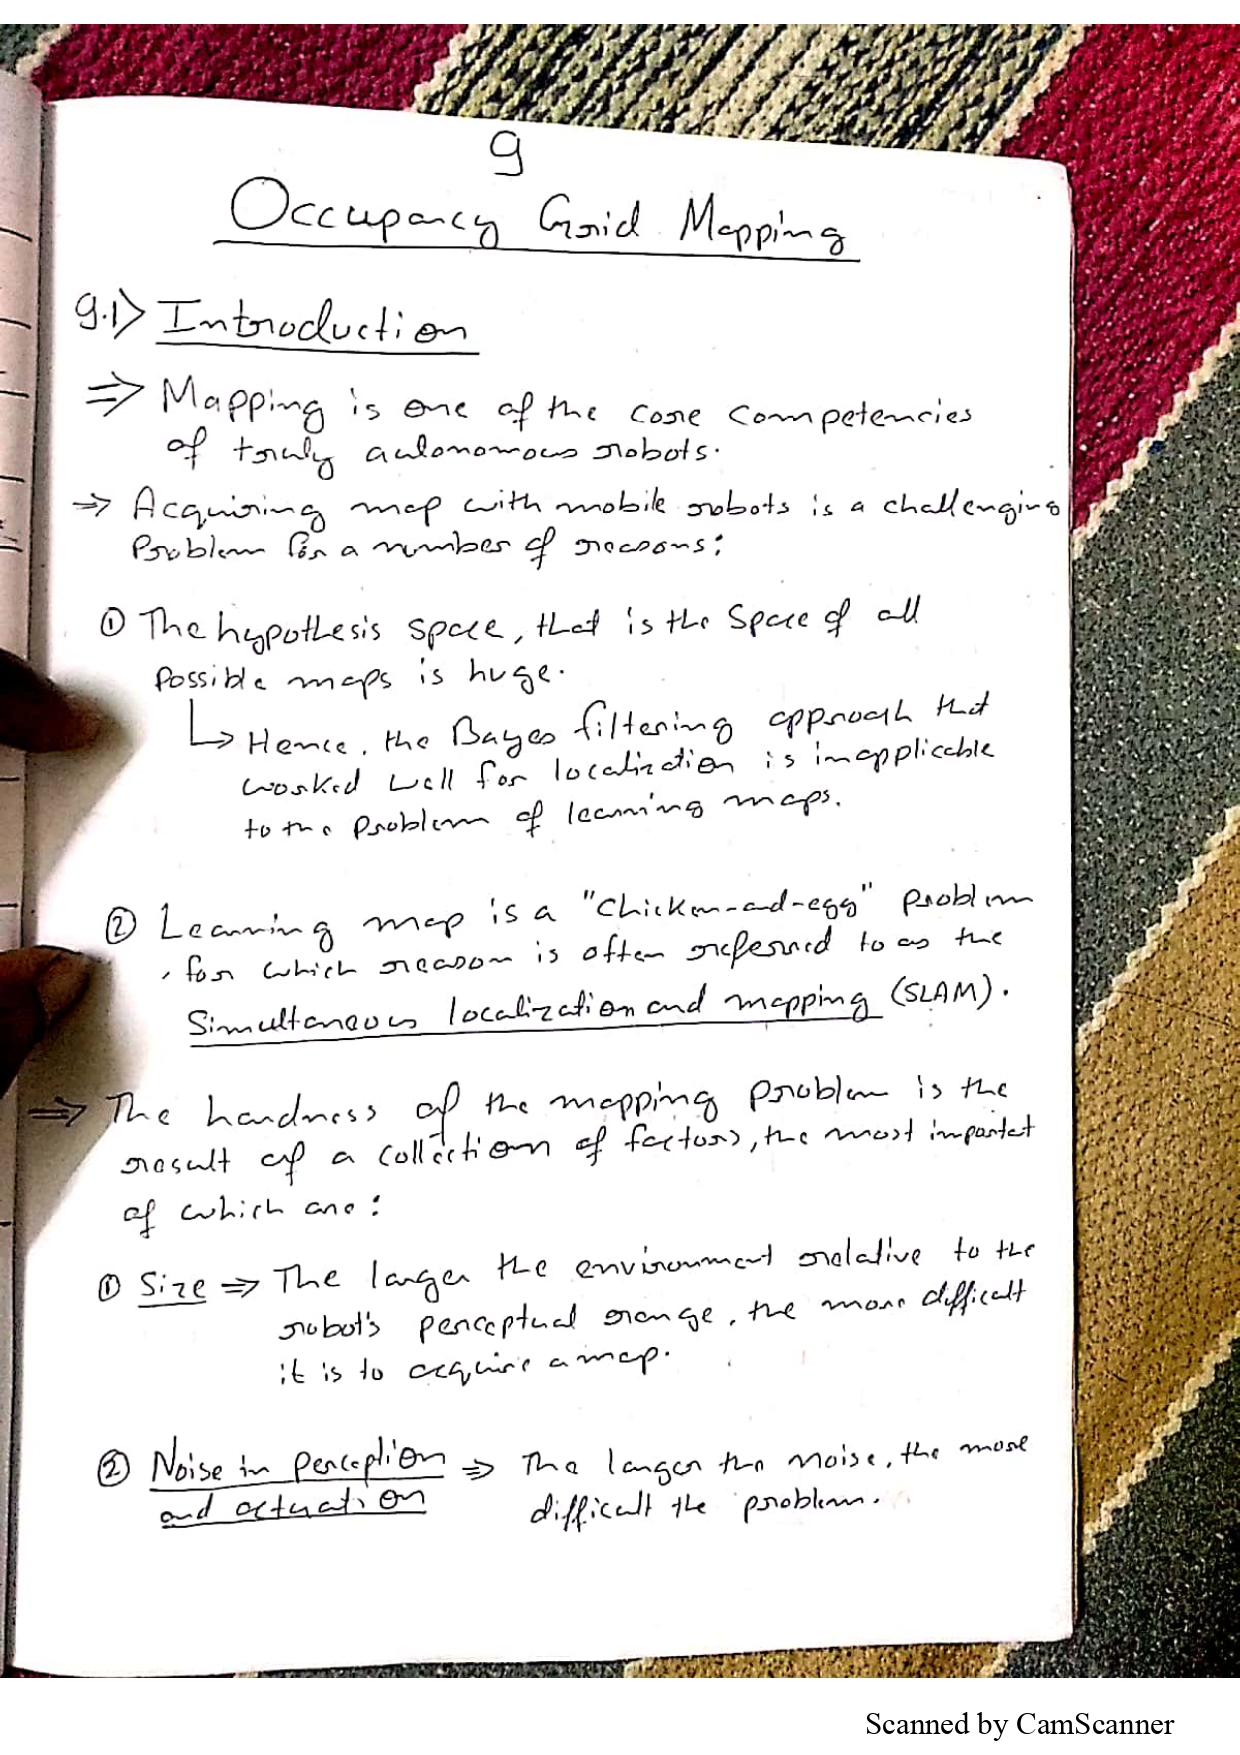 9
Occupancy Grid Mapping
9.1> Introduction
⇒ Mapping is one of the core competencies
of truly autonomous robots.
⇒ Acquiring map with mobile robots is a challenging
Problem for a number of reasons:
① The hypothesis space, that is the space of all
possible maps is huge.
↳ Hence, the Bayes filtering approach that
worked well for localization is inapplicable
to the problem of learning maps.
② Learning map is a "chicken-and-egg" problem
, for which reason is often referred to as the
Simultaneous localization and mapping (SLAM).
⇒ The hardness of the mapping problem is the
result of a collection of factors, the most importat
of which are:
① Size ⇒ The larger the environment relative to the
robot's perceptual range, the more difficult
it is to acquire a map.
② Noise in perception ⇒ The larger the noise, the more
and actuation difficult the problem.
Scanned by CamScanner